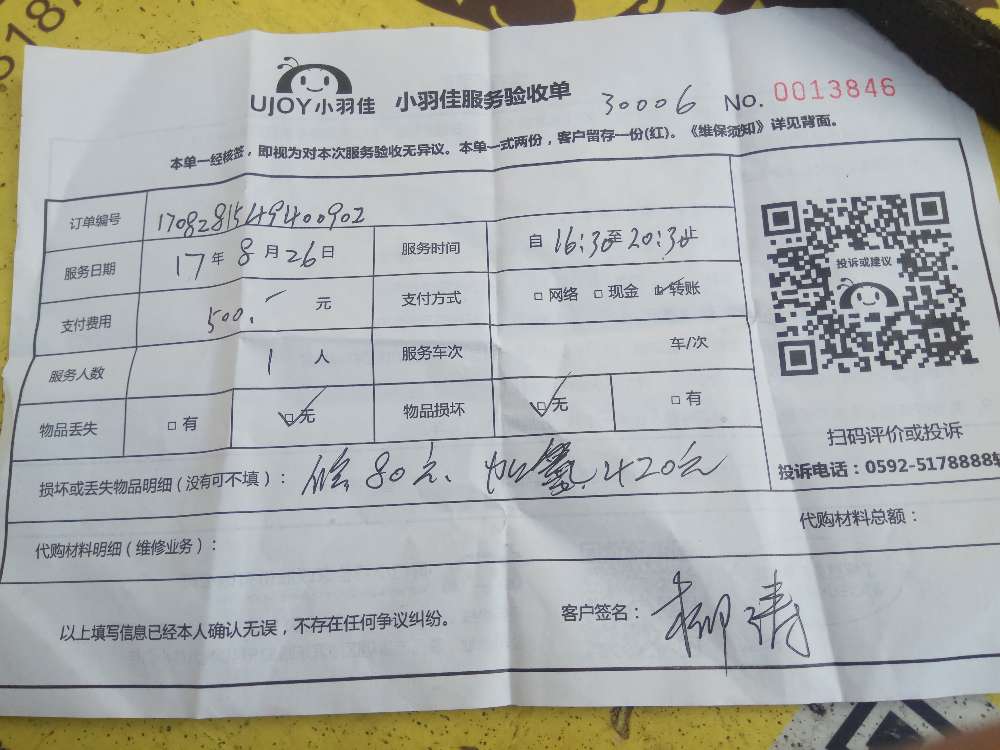 UJOY小羽佳 小羽佳服务验收单 30006 No. 0013846
本单一经核签，即视为对本次服务验收无异议。本单一式两份，客户留存一份(红)。《维保须知》详见背面。
订单编号 170828154940 0902
服务日期 17年8月26日 服务时间 自16:30至20:30止
支付费用 500. 元 支付方式 □网络 □现金 ☑转账
服务人数 1人 服务车次 车/次
物品丢失 □有 ☑无 物品损坏 ☑无 □有
损坏或丢失物品明细（没有可不填）： 80元、加氟.420元
代购材料明细（维修业务）： 代购材料总额：
以上填写信息已经本人确认无误，不存在任何争议纠纷。 客户签名：
投诉或建议
扫码评价或投诉
投诉电话：0592-5178888转